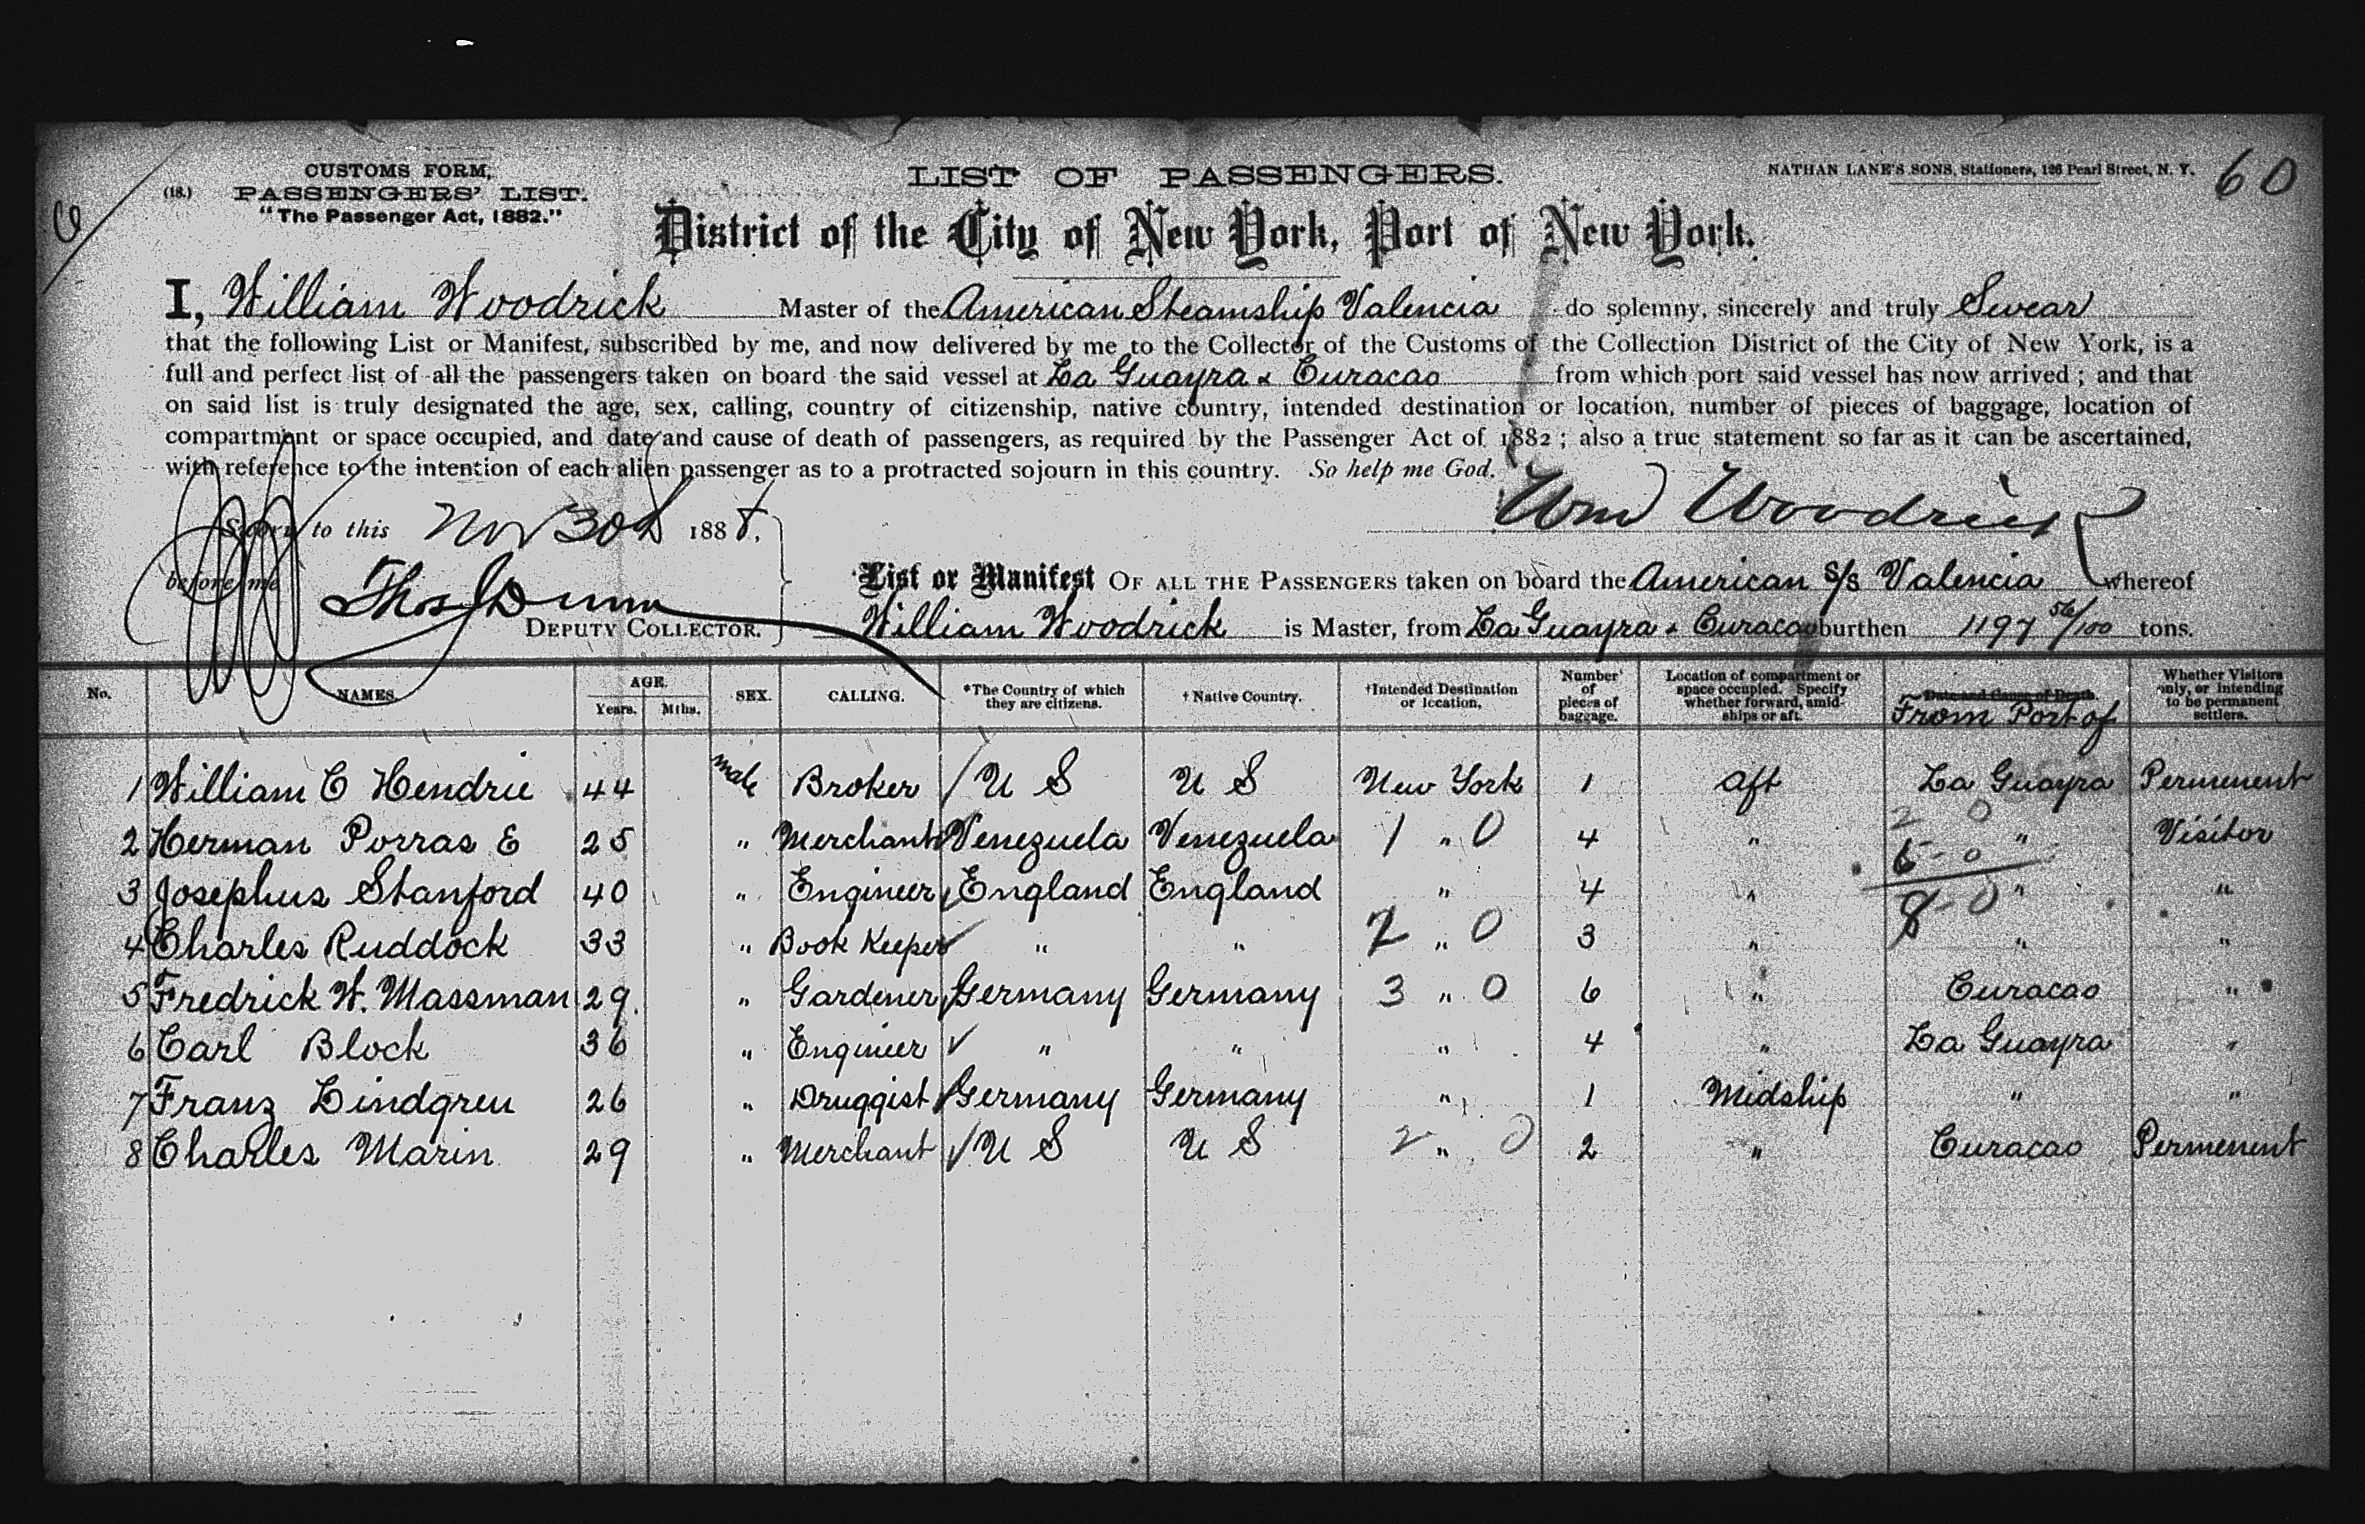 CUSTOMS FORM,
(18.) PASSENGERS' LIST.
"The Passenger Act, 1882."
LIST OF PASSENGERS.
NATHAN LANE'S SONS, Stationers, 126 Pearl Street, N. Y.
60
6
District of the City of New York, Port of New York.
I, William Woodrick Master of the American Steamship Valencia do solemny, sincerely and truly Swear
that the following List or Manifest, subscribed by me, and now delivered by me to the Collector of the Customs of the Collection District of the City of New York, is a
full and perfect list of all the passengers taken on board the said vessel at La Guayra & Curacao from which port said vessel has now arrived; and that
on said list is truly designated the age, sex, calling, country of citizenship, native country, intended destination or location, number of pieces of baggage, location of
compartment or space occupied, and date and cause of death of passengers, as required by the Passenger Act of 1882; also a true statement so far as it can be ascertained,
with reference to the intention of each alien passenger as to a protracted sojourn in this country. So help me God.
Wm Woodrick
Sworn to this Nov 30th 1888.
before me
Thos J Dunn
DEPUTY COLLECTOR.
List or Manifest OF ALL THE PASSENGERS taken on board the American S/S Valencia whereof
William Woodrick is Master, from La Guayra & Curacao burthen 1197 56/100 tons.
No. NAMES. AGE. Years. Mths. SEX. CALLING. *The Country of which they are citizens. †Native Country. †Intended Destination or location. Number of pieces of baggage. Location of compartment or space occupied. Specify whether forward, amidships or aft. Date and Cause of Death. From Port of Whether Visitors only, or intending to be permanent settlers.
1 William C Hendrie 44 male Broker / U S U S New York 1 Aft La Guayra Permenent
2 Herman Porras E 25 " Merchant Venezuela Venezuela 1 " 0 4 " 2 0 " Visitor
3 Josephus Stanford 40 " Engineer ✓ England England " 4 " 6-0 " "
4 Charles Ruddock 33 " Book Keeper ✓ " " 2 " 0 3 " 8-0 " "
5 Fredrick W. Massman 29 " Gardener ✓ Germany Germany 3 " 0 6 " Curacao "
6 Carl Block 36 " Engineer ✓ " " " 4 " La Guayra "
7 Franz Lindgren 26 " Druggist ✓ Germany Germany " 1 Midship " "
8 Charles Marin 29 " Merchant ✓ U S U S 2 " 0 2 " Curacao Permenent